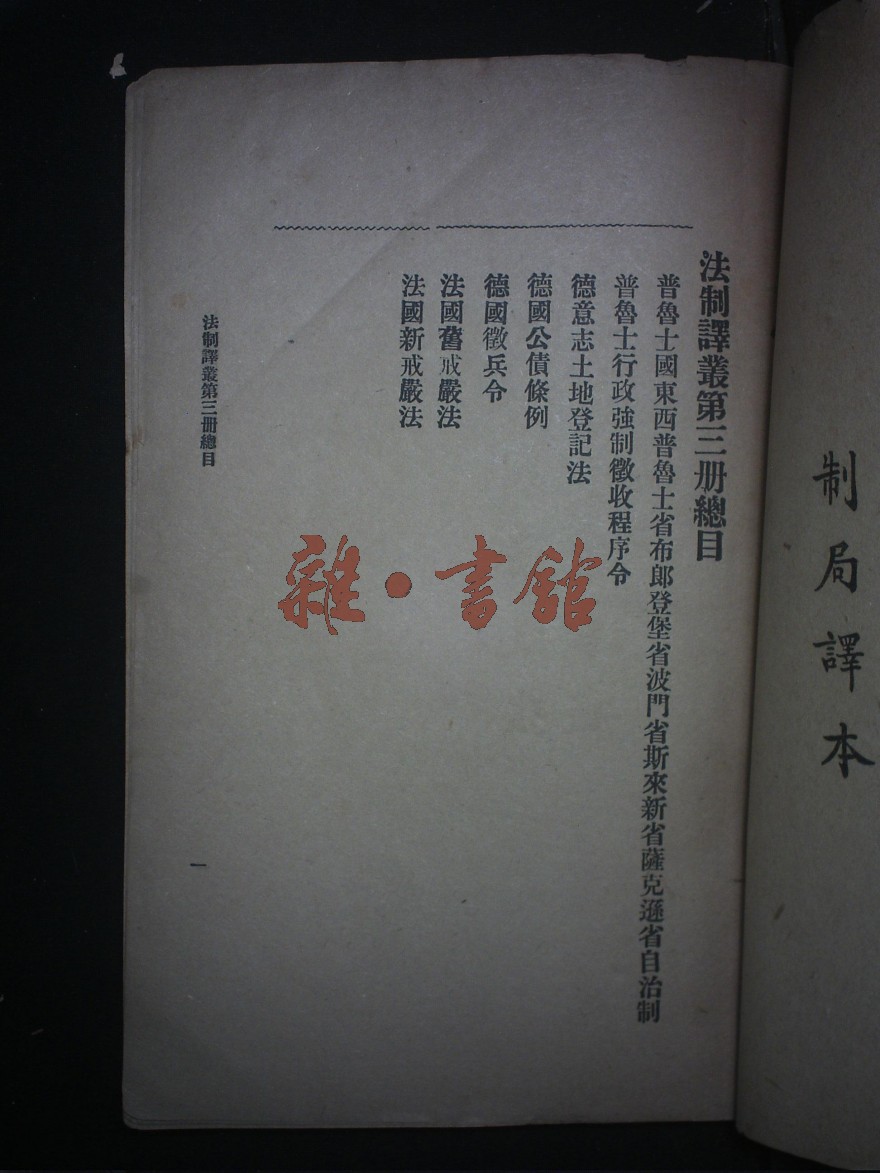 制局譯本
法制譯叢第三册總目
普魯士國東西普魯士省布郎登堡省波門省斯來新省薩克遜省自治制
普魯士行政強制徵收程序令
德意志土地登記法
德國公債條例
德國徵兵令
法國舊戒嚴法
法國新戒嚴法
法制譯叢第三册總目
一
雜·書館